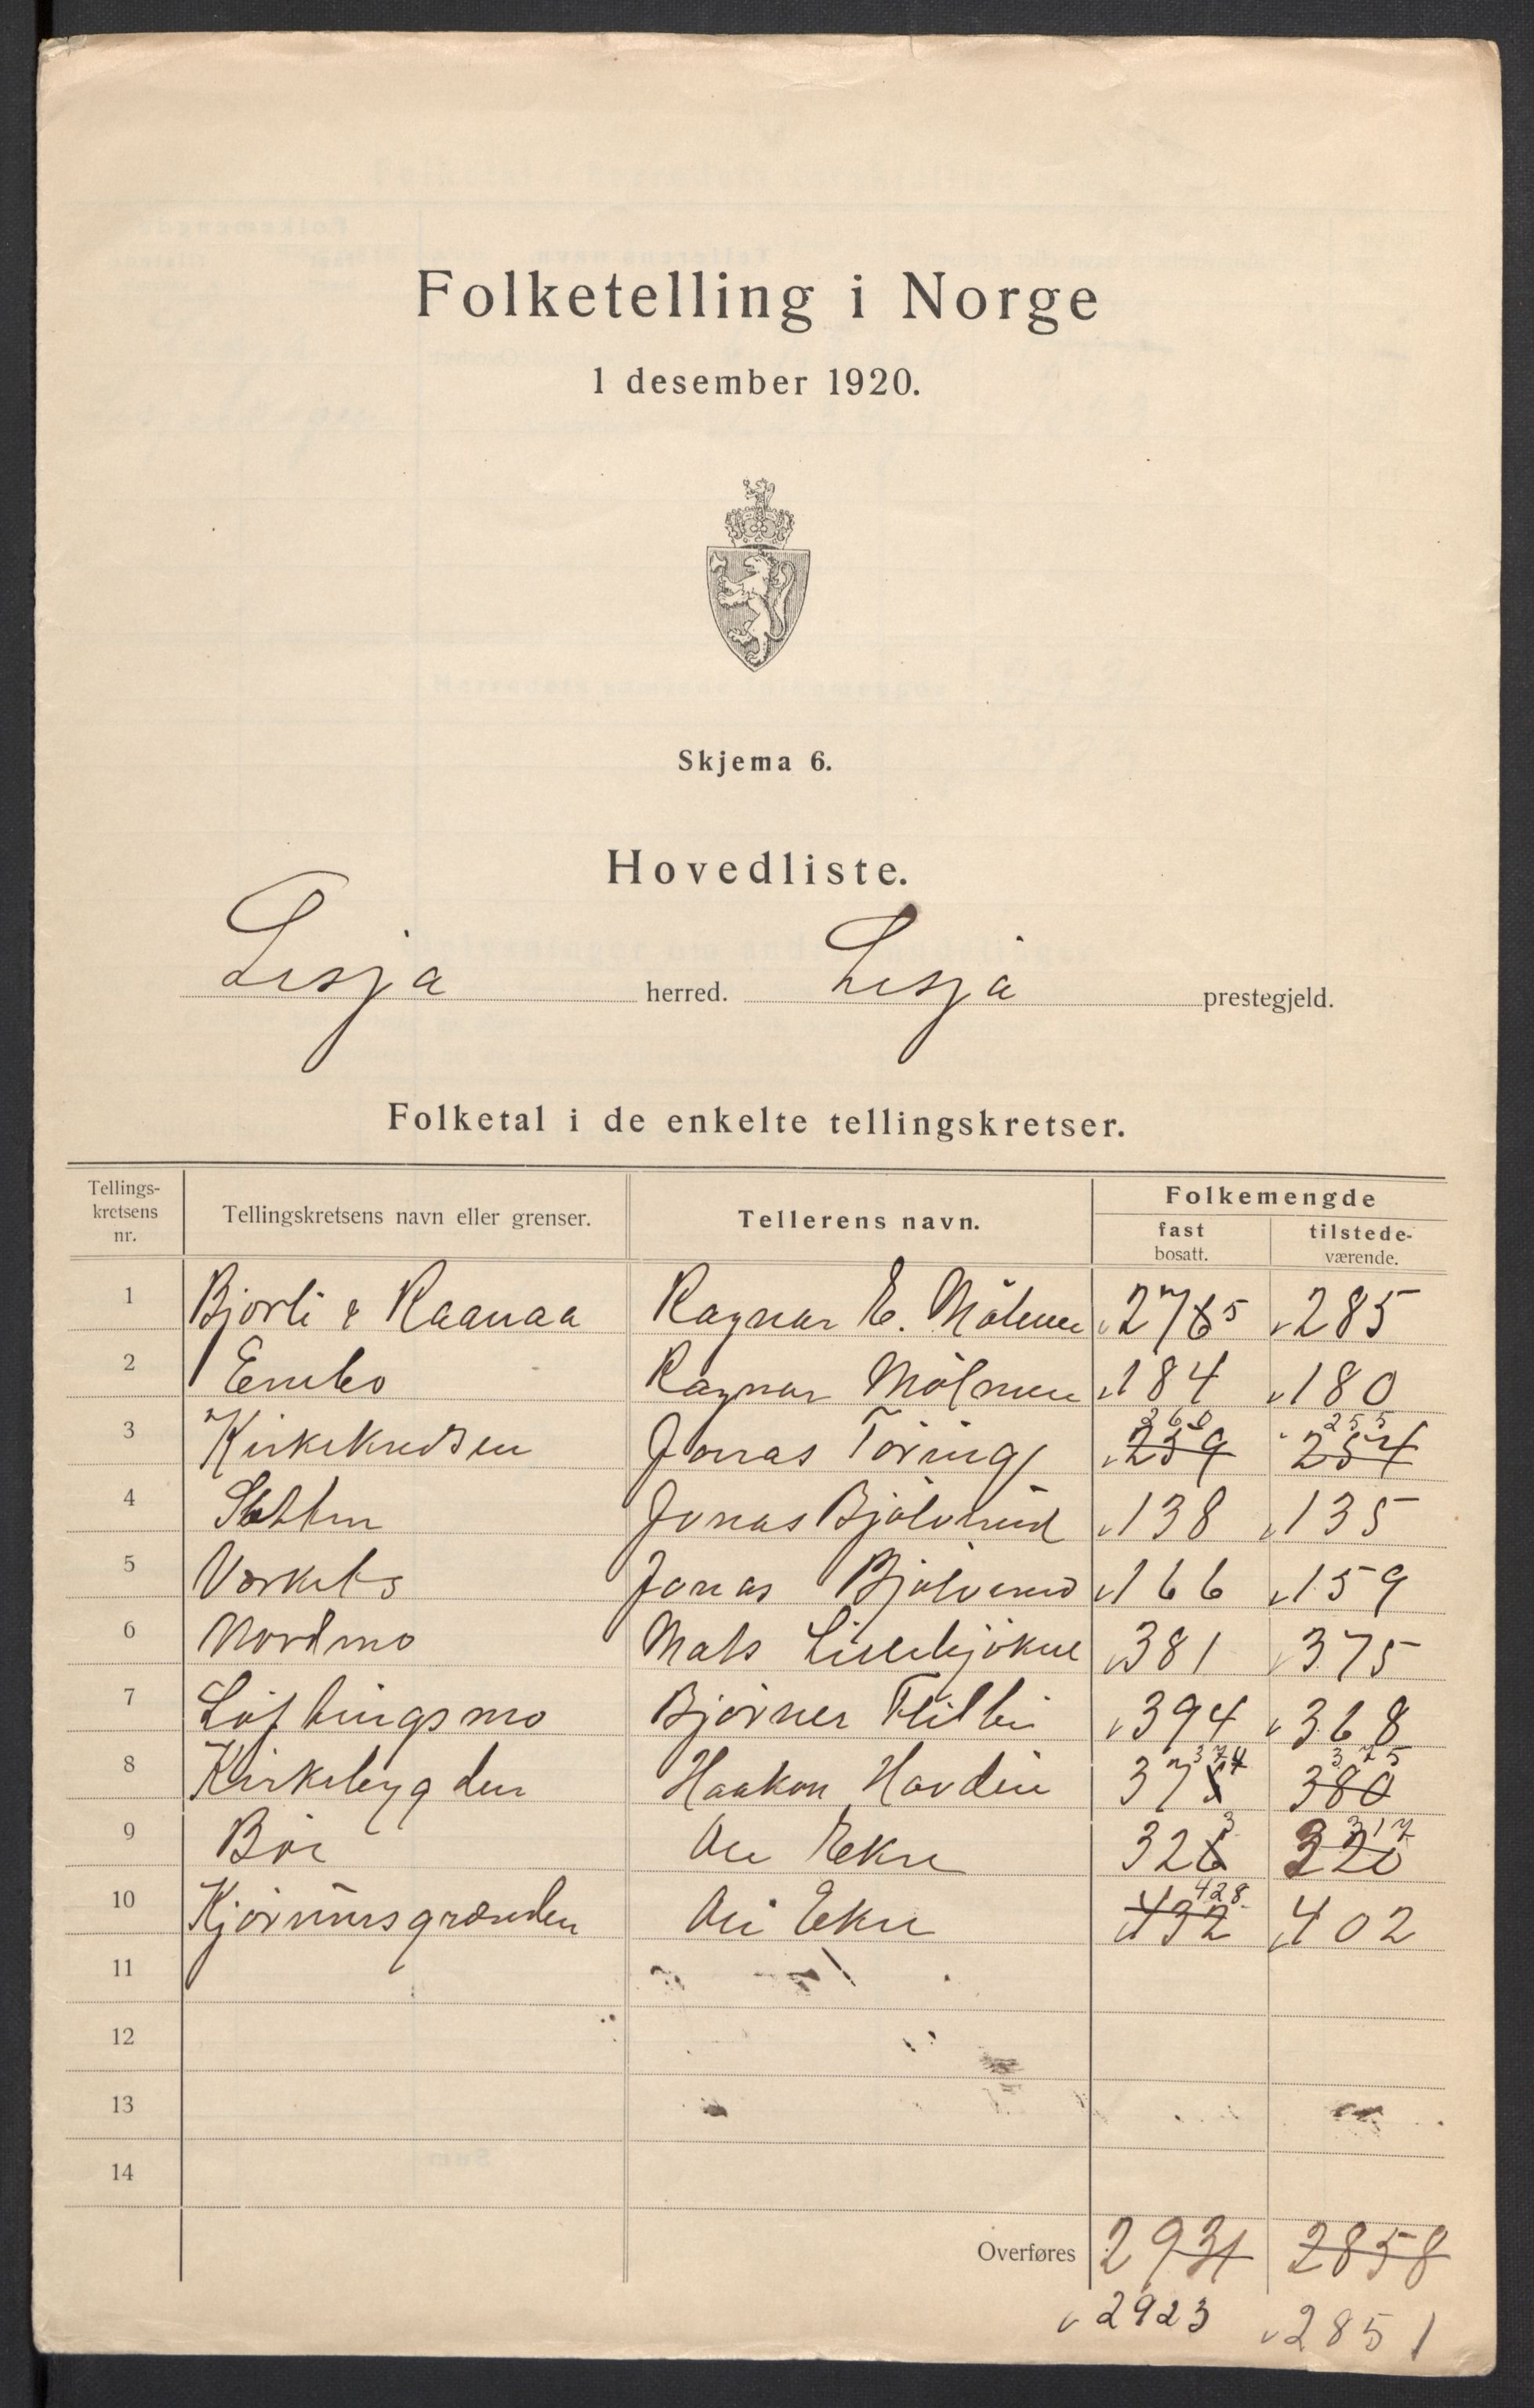 Folketelling i Norge
1 desember 1920.
Skjema 6.
Hovedliste.
Lesja herred. Lesja prestegjeld.
Folketal i de enkelte tellingskretser.
Tellings-kretsens nr. Tellingskretsens navn eller grenser. Tellerens navn. Folkemengde
fast bosatt. tilstede-værende.
1 Bjorli & Raanaa Ragnar E. Mölmen 2765 285
2 Enebo Ragnar Mölmen 184 180
260 255
3 Kirkekredsen Jonas Töring 259 254
4 Jonas Bjölverud 138 135
5 Verkets Jonas Bjölverud 166 159
6 Nordmo Mats Lillebjökne 381 375
7 Löftingsmo Björner Flittie 394 368
374 375
8 Kirkebygden Haakon Hovdin 375 380
3 317
9 Böe Ole Ekre 326 320
428
10 Kjörumsgrænden Ole Ekre 432 402
11
12
13
14
Overføres 2931 2858
2923 2851